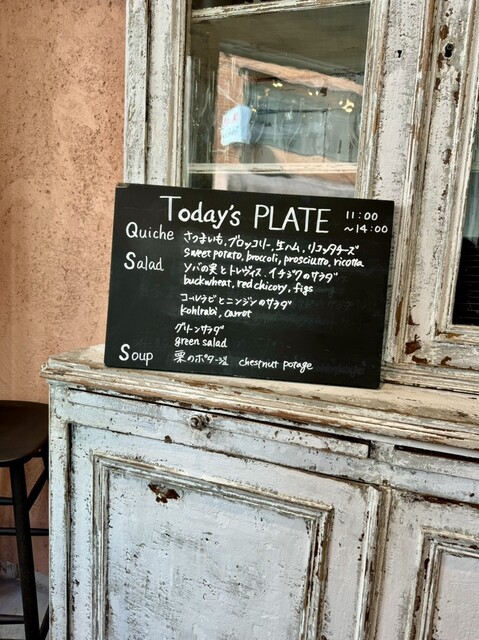 Today's PLATE 11:00
~14:00
Quiche さつまいも、ブロッコリー、生ハム、リコッタチーズ
sweet potato, broccoli, prosciutto, ricotta
Salad ソバの実とトレヴィス、イチジクのサラダ
buckwheat, red chicory, figs
コールラビとニンジンのサラダ
kohlrabi, carrot
グリーンサラダ
green salad
Soup 栗のポタージュ chestnut potage